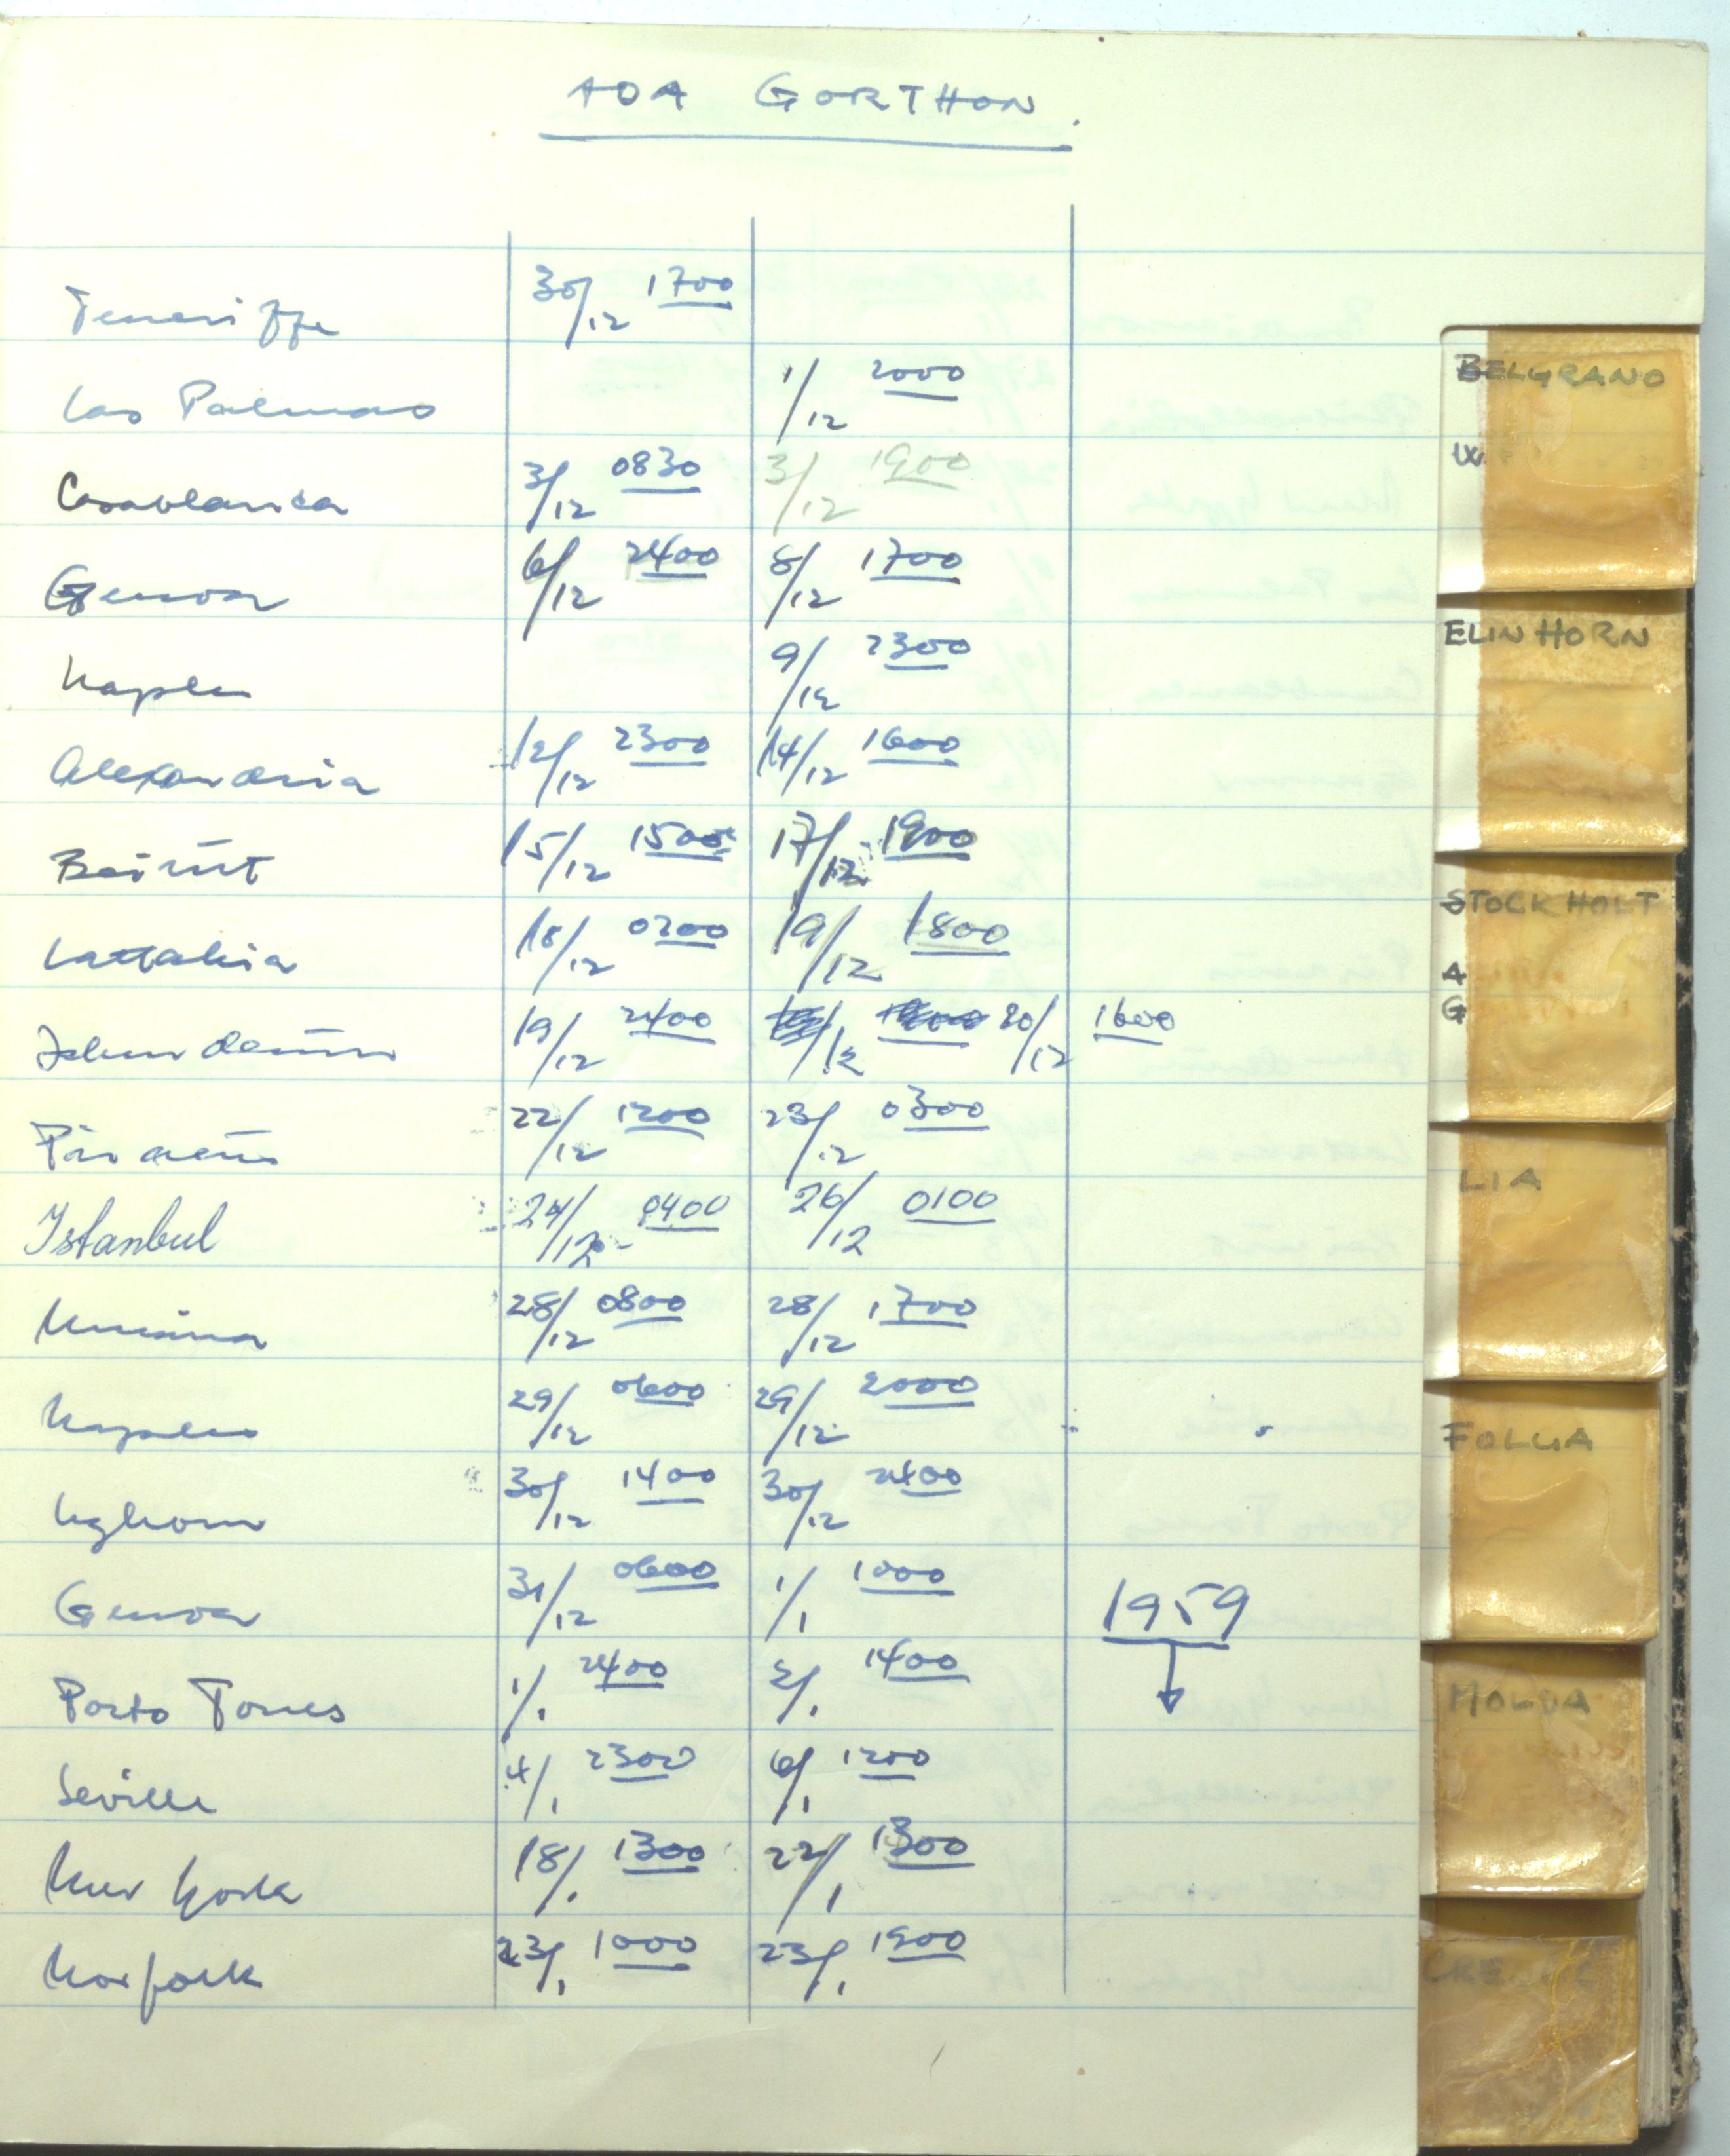 ADA GORTHON.
Teneriffe 30/12 1700
Las Palmas 1/12 2000
Casablanca 3/12 0830 3/12 1900
Genoa 6/12 2400 8/12 1700
Naples 9/12 2300
Alexandria 12/12 2300 14/12 1600
Beirut 15/12 1500 17/12 1900
Lattakia 18/12 0200 19/12 1800
19/12 2400 20/12 1600
Piraeus 22/12 1200 23/12 0300
Istanbul 24/12 0400 26/12 0100
28/12 0800 28/12 1700
Naples 29/12 0600 29/12 2000
Leghorn 30/12 1400 30/12 2400
Genoa 31/12 0600 1/1 1000 1959
Porto Torres 1/1 2400 2/1 1400
Seville 4/1 2300 6/1 1200
New York 18/1 1300 22/1 1300
Norfolk 23/1 1000 23/1 1900
BELGRANO
W
ELIN HORN
STOCKHOLT
A
G
LIA
FOLGA
MOLDA